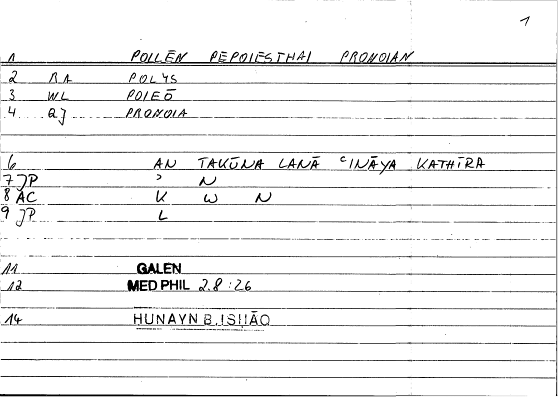 1
1 POLLĒN PEPOIESTHAI PRONOIAN
2 RA POLYS
3 WL POIEŌ
4 QJ PRONOIA
6 AN TAKŪNA LANĀ ʿINĀYA KATHĪRA
7 JP ʾ N
8 AC K W N
9 JP L
11 GALEN
12 MED PHIL 2.8:26
14 HUNAYN B.ISḤĀQ